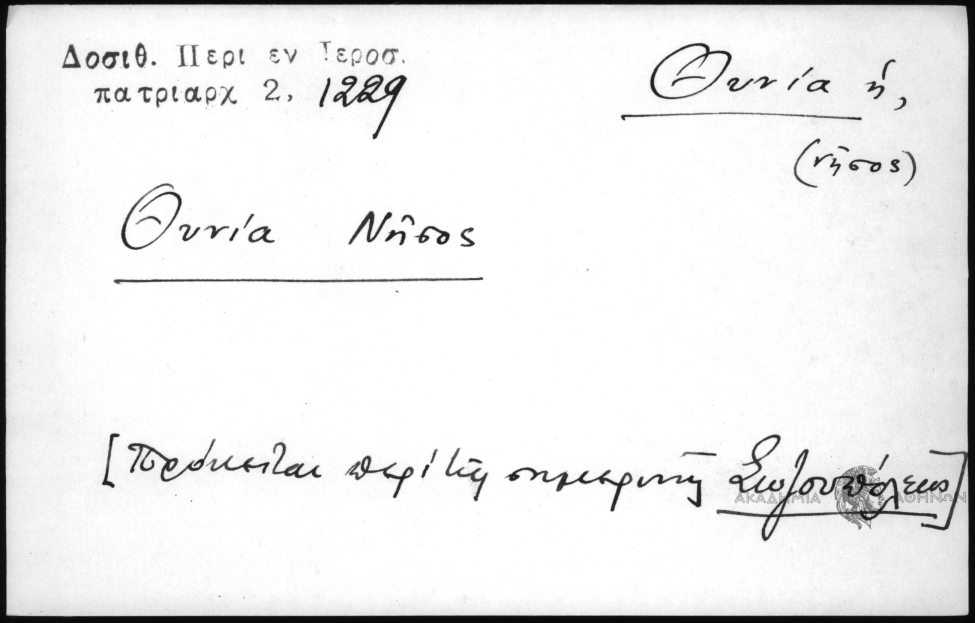 Δοσιθ. Περι εν Ιεροσ.
πατριαρχ 2, 1229
Θυνία ἡ,
(νῆσος)
Θυνία Νῆσος
[Πρόκειται περὶ τῆς σημερινῆς Σωζουπόλεως]
ΑΚΑΔΗΜΙΑ ΑΘΗΝΩΝ